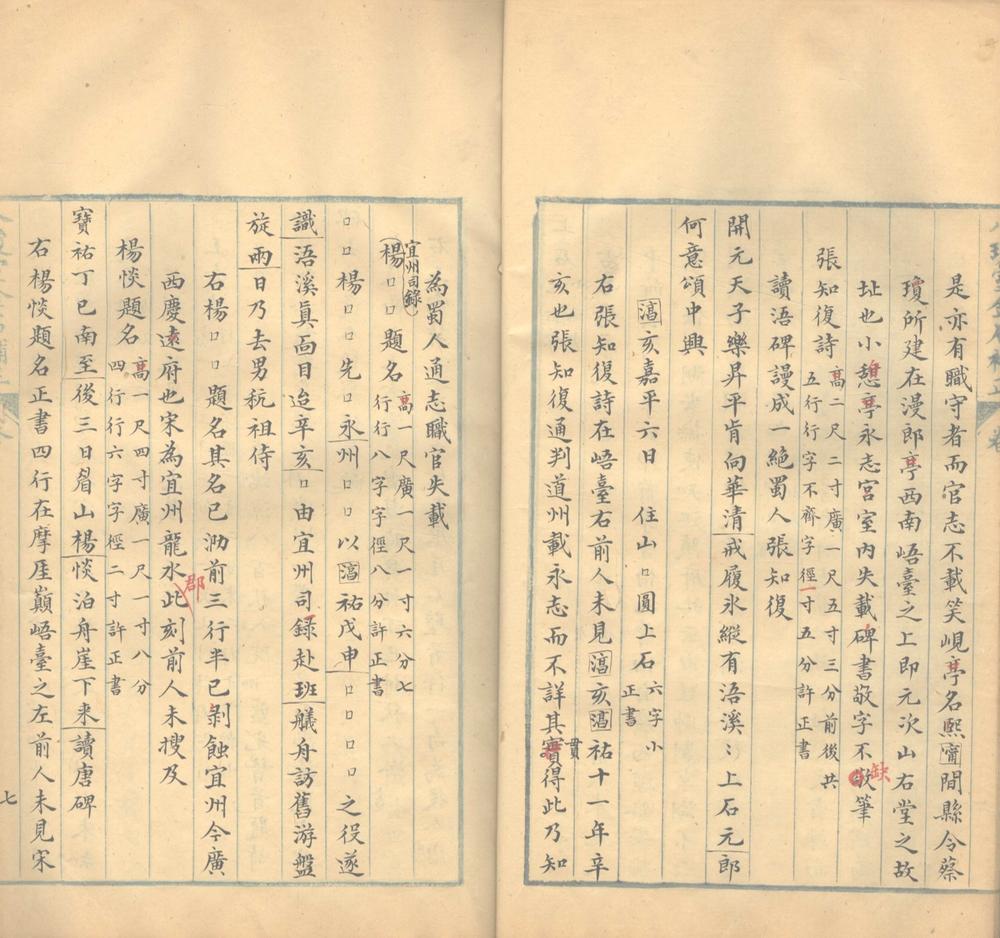 是亦有職守者而官志不載笑峴亭名熙甯間縣令蔡
瓊所建在漫郎亭西南峿臺之上即元次山右堂之故
址也小憩亭永志宮室內失載碑書敬字不敬筆
缺
張知復詩 高二尺二寸廣一尺五寸三分前後共
五行行字不齊字徑一寸五分許正書
讀浯碑謾成一絕蜀人張知復
開元天子樂昇平肯向華清戒履氷縱有浯溪〻上石元郎
何意頌中興
湻亥嘉平六日 住山□圓上石 六字小
正書
右張知復詩在峿臺右前人未見湻亥湻祐十一年辛
亥也張知復通判道州載永志而不詳其實得此乃知
貫
為蜀人通志職官失載
宜州司錄
楊□□題名 高一尺廣一尺一寸六分七
行行八字字徑八分許正書
□□楊□□先□永州□□以湻祐戊申□□□□之役遂
識浯溪眞面目迨辛亥□由宜州司録赴班艤舟訪舊游盤
旋兩日乃去男秔祖侍
右楊□□題名其名已泐前三行半已剥蝕宜州今廣
西慶遠府也宋為宜州龍水此刻前人未搜及
郡
楊惔題名 高一尺四寸廣一尺一寸八分
四行行六字字徑二寸許正書
寶祐丁巳南至後三日眉山楊惔泊舟崖下来讀唐碑
右楊惔題名正書四行在摩厓巔峿臺之左前人未見宋
七